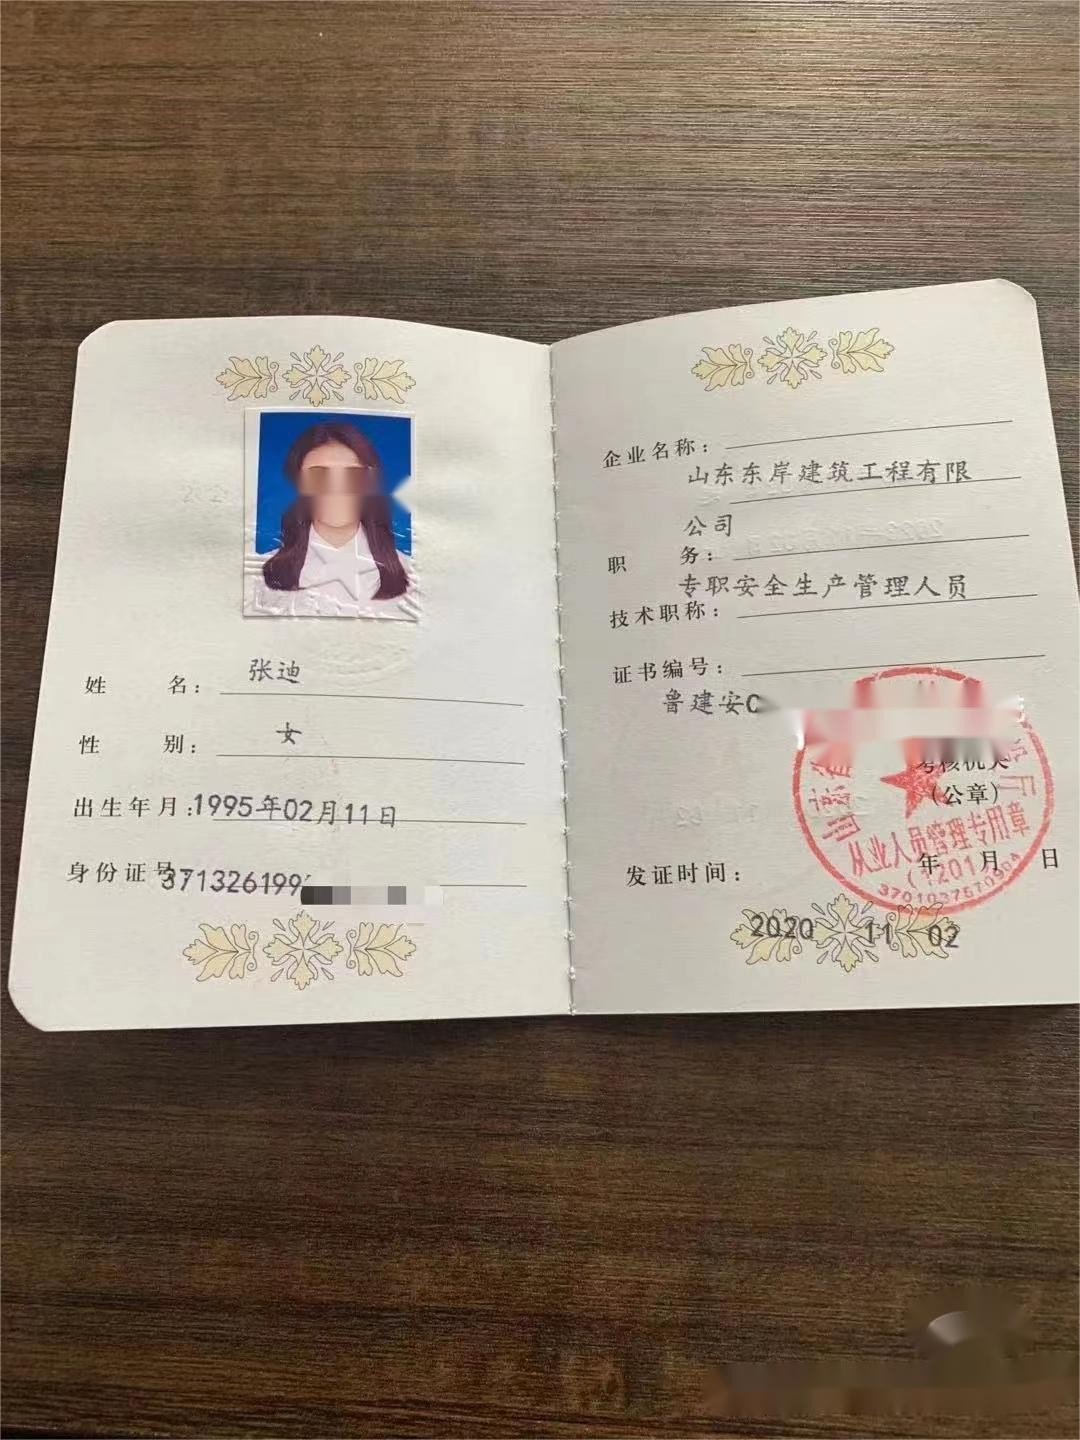 姓 名：张迪
性 别：女
出生年月：1995年02月11日
身份证号：371326199
企业名称：山东东岸建筑工程有限
公司
职 务：
专职安全生产管理人员
技术职称：
证书编号：
鲁建安C
考核机关
（公章）
从业人员管理专用章
发证时间： 年 月 日
2020 11 02